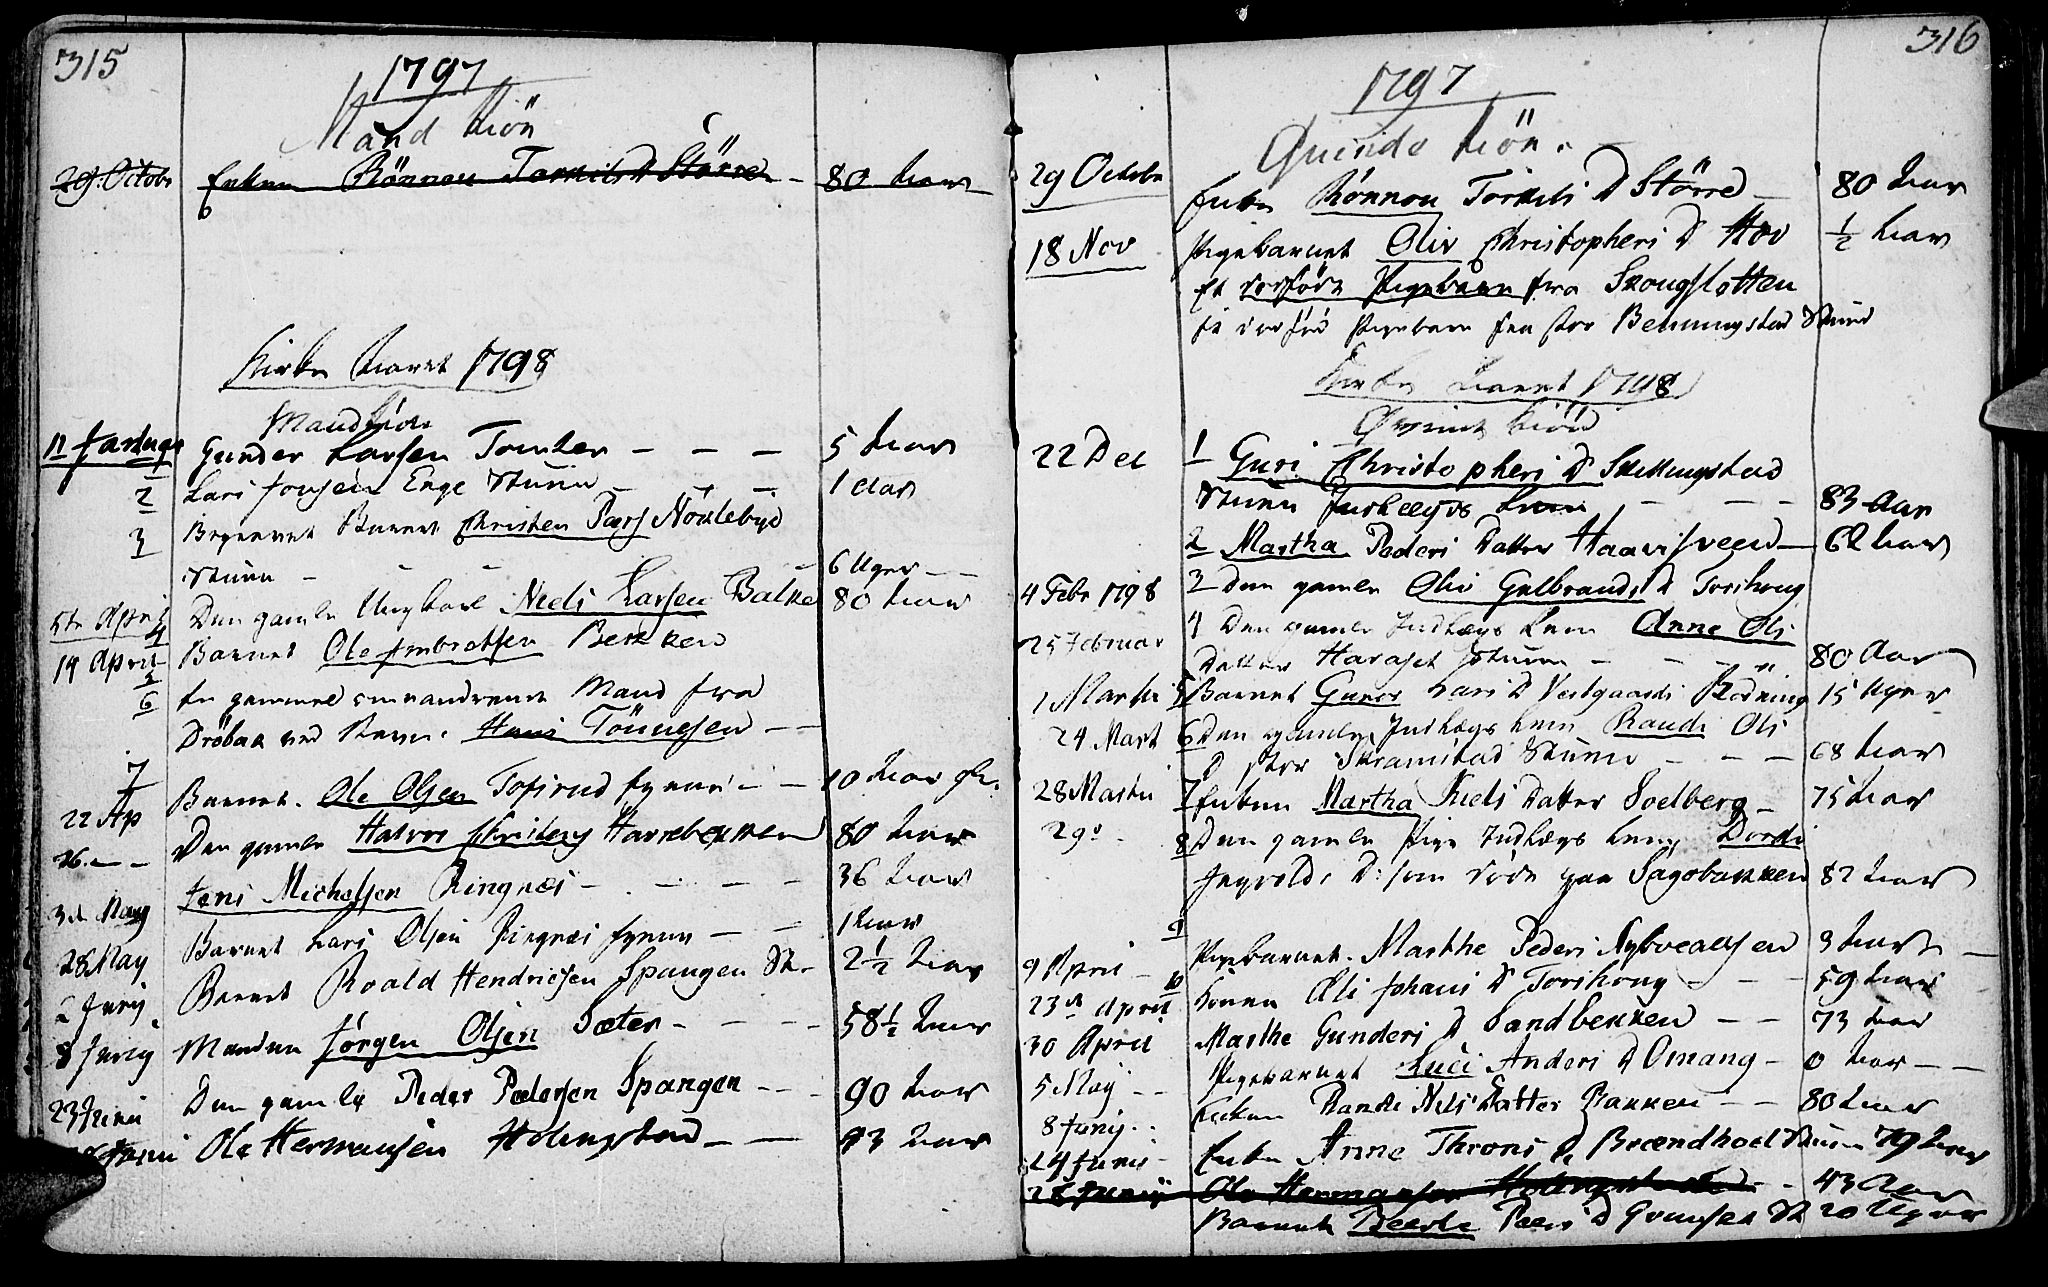 315
1797
Mand Kiön
29. Octobr Enken Rönnou Torkils D Större – 80 Aar
Kirke Aaret 1798
Mandkiön
1 fastnæs Gunder Larsen Tomter – – – 5 Aar
2 Lars Jonsen Enge Stuen – – – 1 Aar
3 Begravet Barnet Christen Pærs Nöklebye
Stuen – – – 6 Uger
5te April 4 Den gamle Ungkarl Niels Larsen Balke 80 Aar
14 April 5 Barnet Ole Embretsen Bekken
6 En gammel omvandrende Mand fra
Dröbak ved Navn: Hans Tönnesen – –
7
22 Ap Barnet. Ole Olsen Tofsrud – 10 Aar gl.
26. – – Den gamle Halvor Harrebekken 80 Aar
Jens Michelsen Ringnæs – – – – 36 Aar
3de May Barnet Lars Olsen Ringnæs – – 1 Aar
28 May Barnet Roald Hendrichsen Spangen St. – 2½ Aar
2 Junij
8 Junij Manden Jörgen Olsen Sæter – – – 58½ Aar
23 Juni Den gamle Peder Pedersen Spangen – – 90 Aar
Juni Ole Hermansen Holmstad – – 43 Aar
316
1797
Qvinde Kiön.
29 Octobr Enken Rönnou Torkils D Större – 80 Aar
18 Nov Pigebarnet Oliv Christophers D Hov ½ Aar
Et dödföde Pigebarn fra Skougslotten
Et dödföd Pigebarn fra stor Benningstad Stuen
Kirke Aaret 1798
Qvinde Kiön
22 Dec 1 Guri Christophers D Skillingstad
Stuen Indlægs Lem – – – 83 Aar
2 Martha Peders Datter Haarsveen – 62 Aar
4 Febr 1798 3 Den gamle Oliv Gulbrands D Torshoug
25 Februar 4 Den gamle Indlægs Lem Anne Ols
Datter Haraset Stuen – – – 80 Aar
1 Martii 5 Barnet Guror Lars D Vestgaards Rodning 15 Uger
24 Mart 6 Den gamle Indlægs Lem Randi Ols
D stor Skramstad Stuen – – – 68 Aar
28 Martii 7 Enken Martha Niels Datter Soelberg – 75 Aar
29de – 8 Den gamle Pige Indlægs Lem Dordi
Ingvolds D: som döde paa Sagbakken 82 Aar
9
9 April – Pigebarnet. Marthe Peders Nybraaten 3 Aar –
10
23de April Konen Oli Johans D Torshoug – – – 59 Aar
30 April Marthe Gunders D Sandbekken – – 73 Aar
5 May – – Pigebarnet Luci Anders D Omang – 0 Aar – –
8 Junij . . Enken Randi Nels Datter Bakken – – 80 Aar
24 Junii – Enke Anne Throns D Brændhoel Stuen 79 Aar
28 Junij Ole Hermansen Holmstad – 43 Aar
Barnet Beerte Pærs D Grimset St 20 Uger